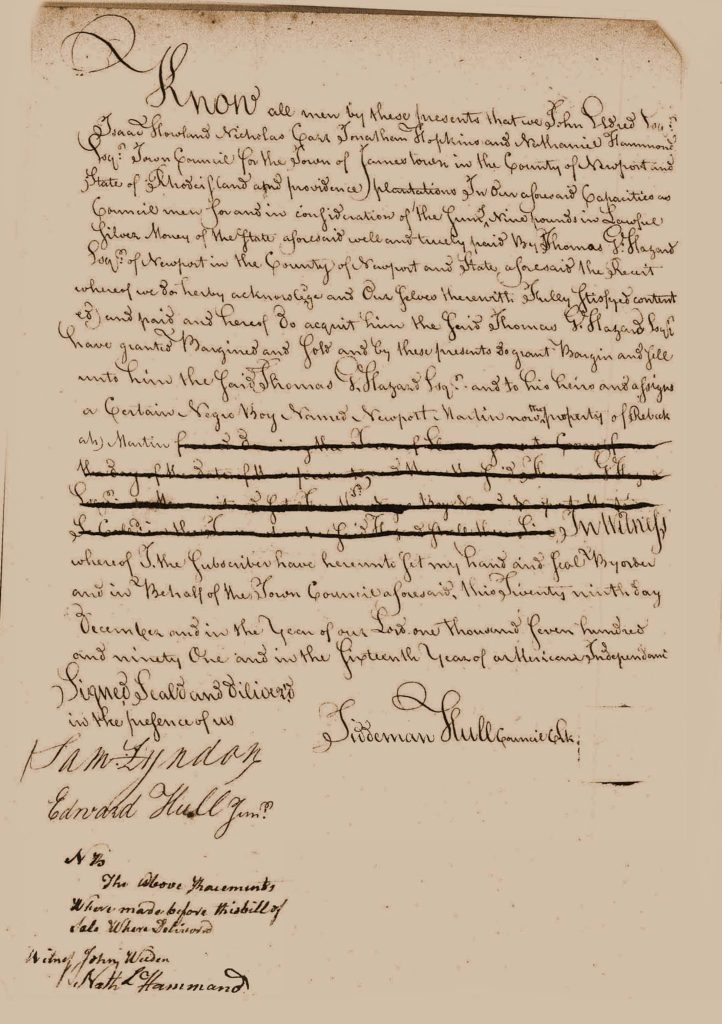 Know all men by these presents that we John Eldred Esqr
Isaac Howland Nicholas Carr Jonathan Hopkins and Nathaniel Hammond
Esqrs Town Council for the Town of Jamestown in the County of Newport and
State of Rhodeisland and providence plantations In Our aforesaid Capacities as
Council men for and in consideration of the Sum Nine pounds in Lawful
Silver Money of the State aforesaid well and truely paid By Thomas G. Hazard
Esqr of Newport in the County of Newport and State aforesaid the Receit
whereof we do herby acknowlige and Our Selves therewith Fully Stisfyed content
ed and paid and hereof do acquit him the Said Thomas G. Hazard Esqr
have granted Bargined and Sold and by these presents do grant Bargin and Sell
unto him the Said Thomas G. Hazard Esqr and to his heirs and assigns
a Certain Negro Boy Named Newport Martin now the property of Rebeck
ah Martin
In Witness
whereof I the Subscriber have hereunto Set my hand and Seal By order
and in Behalf of the Town Council aforesaid, this Twenty ninth day
December and in the Year of our Lord one thousand Seven hundred
and ninety One and in the Sixteenth Year of american Independanc
Signed Seald and Diliverd
in the presence of us
Tiddeman Hull Council Clk
Sam Lyndon
Edward Hull Junr
NB
The Above Racements
Where made before this bill of
Sale Where Deliverd
Witness John Weeden
Nathl Hammond